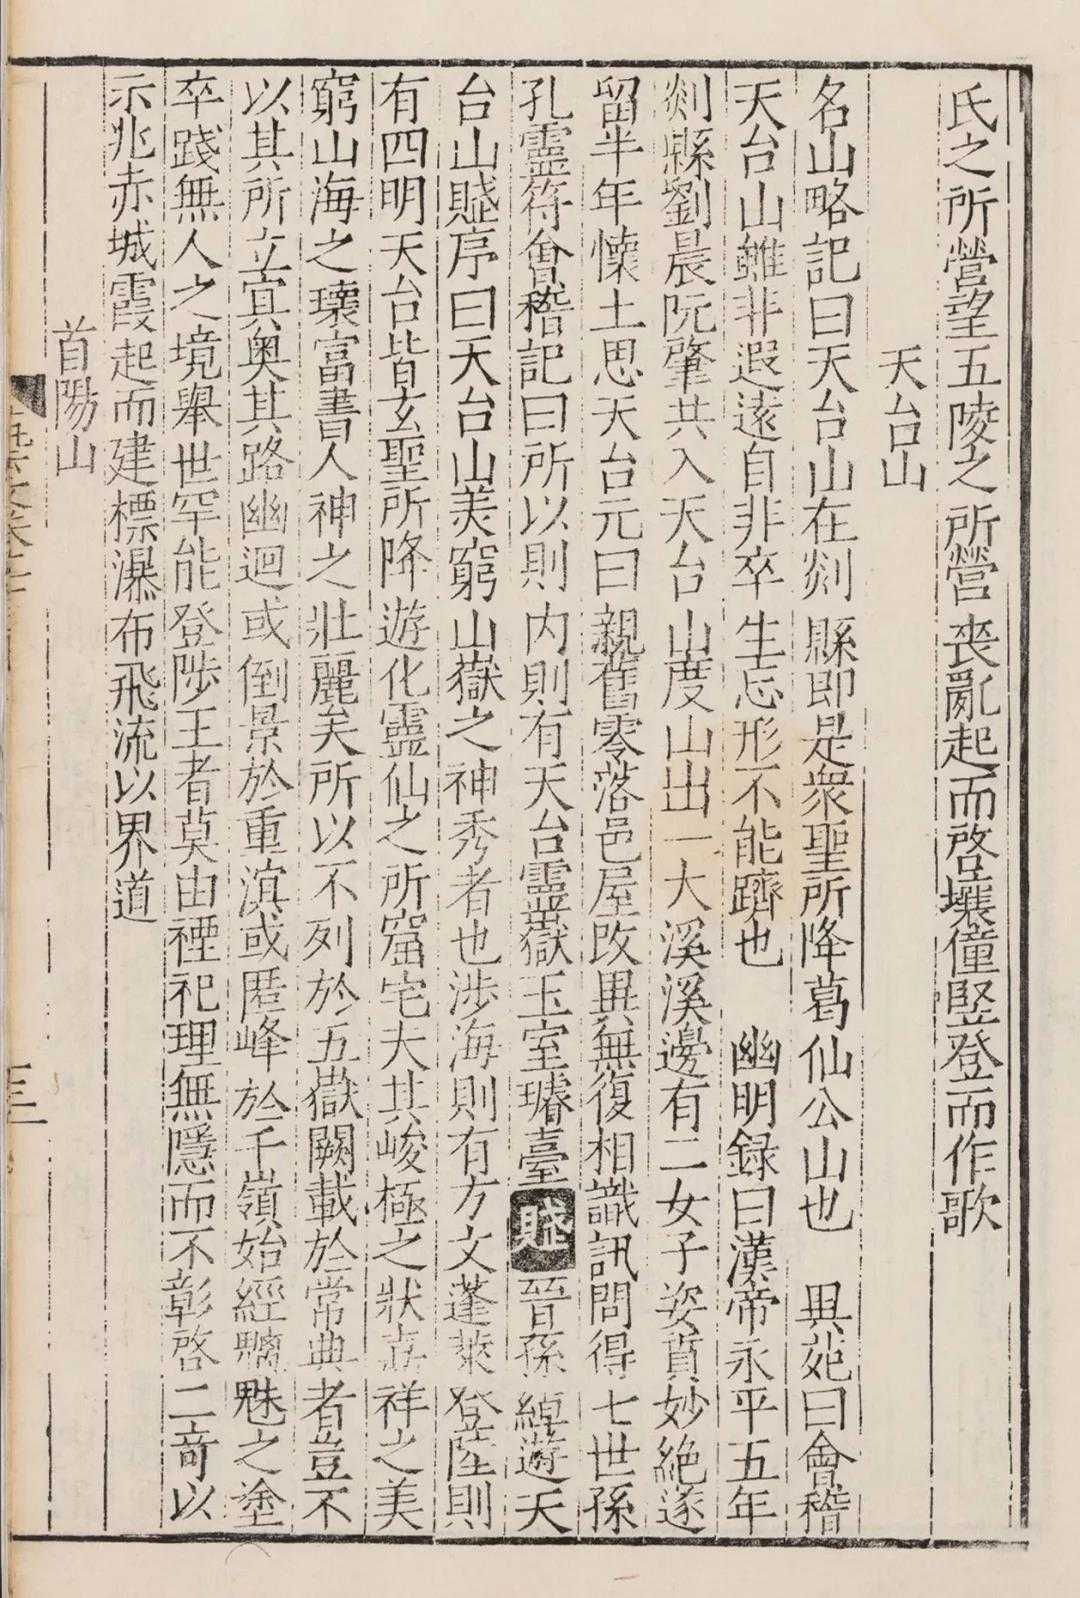 氏之所營望五陵之所營喪亂起而啓壤僮豎登而作歌
天台山
名山略記曰天台山在剡縣即是衆聖所降葛仙公山也 異苑曰會稽
天台山雖非遐遠自非卒生忘形不能躋也 幽明録曰漢帝永平五年
剡縣劉晨阮肇共入天台山度山出一大溪溪邊有二女子姿質妙絶遂
留半年懐土思天台元曰親舊零落邑屋改異無復相識訊問得七世孫
孔靈符會稽記曰所以則内則有天台靈嶽玉室璿臺賦晉孫綽遊天
台山賦序曰天台山美窮山嶽之神秀者也涉海則有方文蓬萊登陸則
有四明天台皆玄聖所降遊化靈仙之所窟宅夫其峻極之狀嘉祥之美
窮山海之瓌富書人神之壯麗矣所以不列於五嶽闕載於常典者豈不
以其所立冥奥其路幽迥或倒景於重溟或匿峰於千嶺始經魑魅之塗
卒踐無人之境舉世罕能登陟王者莫由禋祀理無隱而不彰啓二竒以
示兆赤城霞起而建標瀑布飛流以界道
首陽山